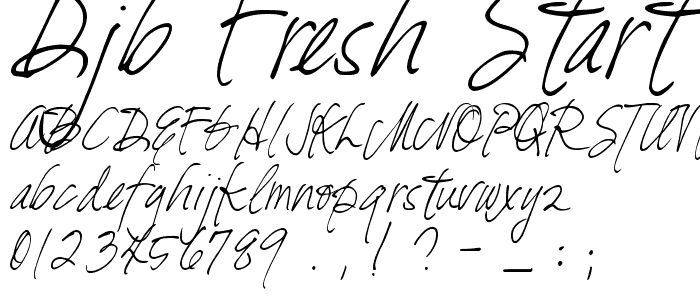 Djb Fresh Start
ABCDEFGHIJKLMNOPQRSTUV
abcdefghijklmnopqrstuvwxyz
0123456789 . , ! ? - _ : ;